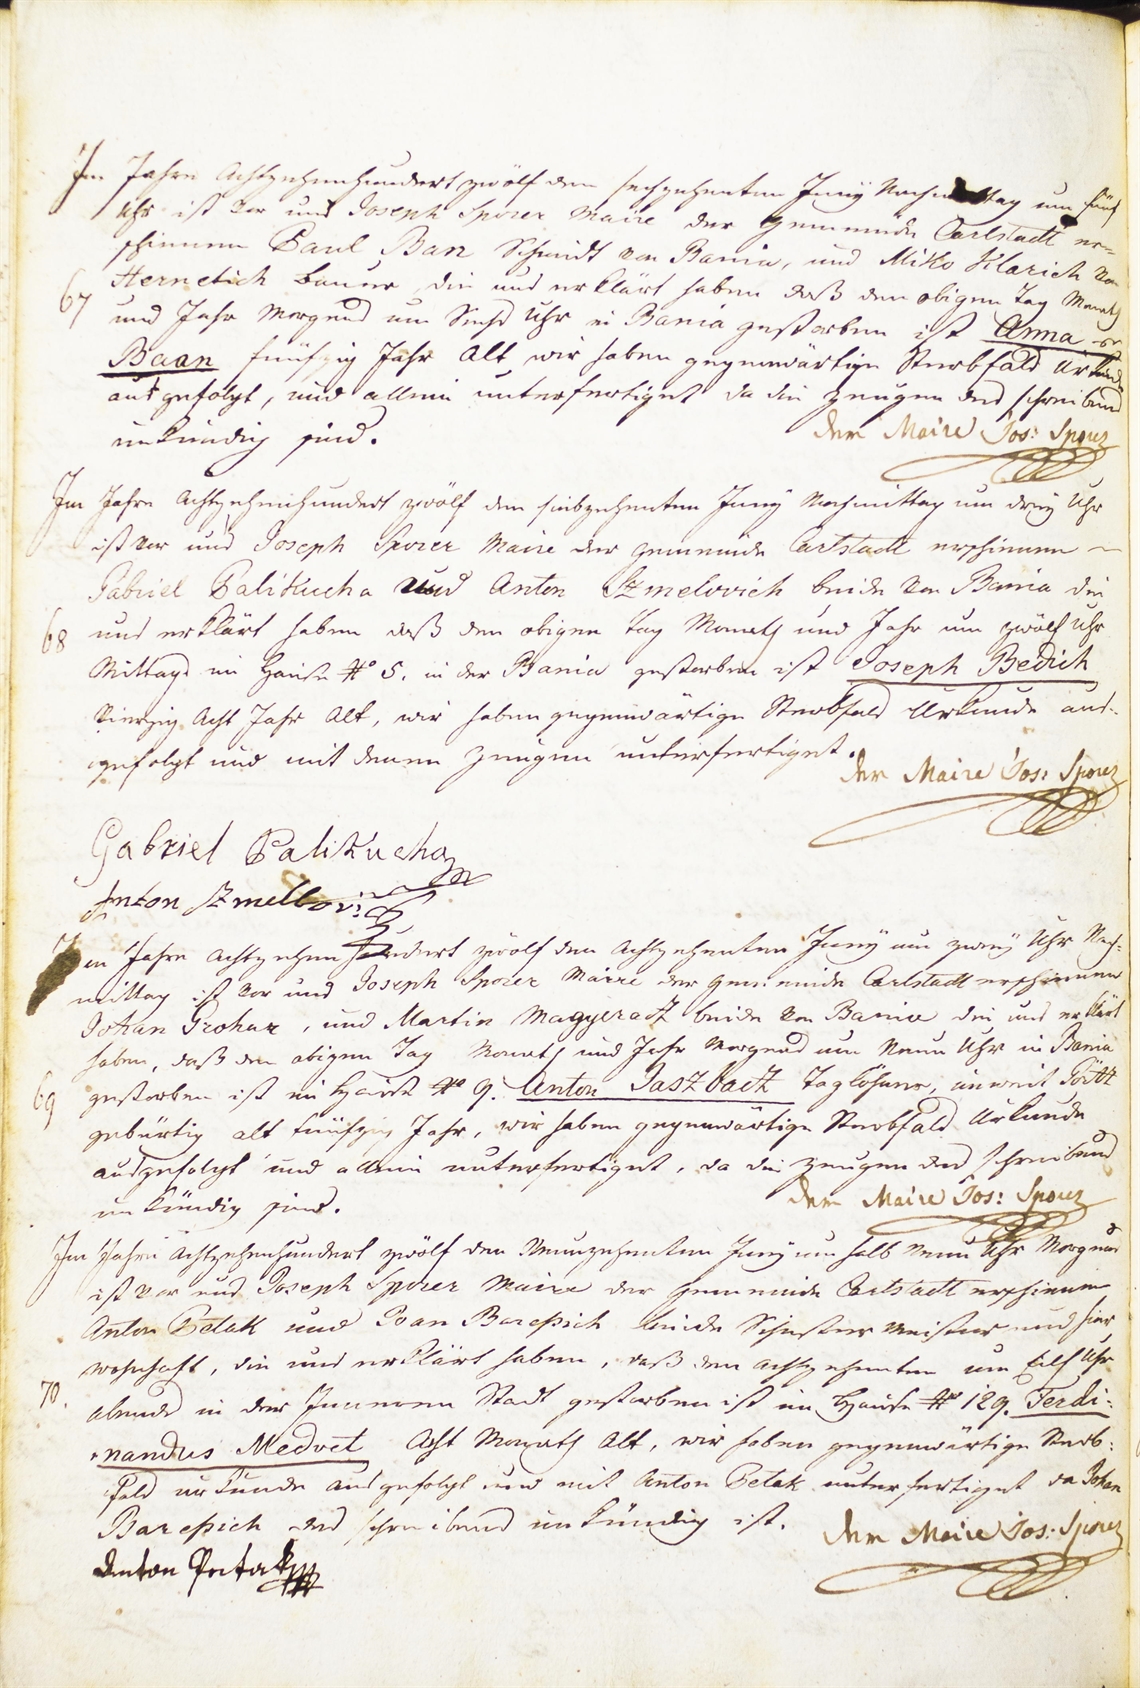 Im Jahre Achtzehenhundert zwölf den sechzehenten Juny Nachmittag um fünf
Uhr ist vor uns Joseph Sporer Maire der Gemeinde Carlstadt er-
schienen Paul Ban Schmidt von Bania, und Miko Klarich von
Hernetich Bauer, die uns erklärt haben daß den obigen Tag Monath
67 und Jahr Morgens um Sechs Uhr in Bania gestorben ist Anna
Baan fünfzig Jahr Alt, wir haben gegenwärtige Sterbfald Urkunde
ausgefolgt, und allein unterfertiget da die Zeugen des schreibens
unkündig sind.
Der Maire Jos: Sporer
Im Jahre Achtzehenhundert zwölf den siebzehenten Juny Nachmittag um drey Uhr
ist vor uns Joseph Sporer Maire der Gemeinde Carlstadt erschienen
Gabriel Palikucha und Anton Szmelovich beide von Bania die
68 uns erklärt haben daß den obigen Tag Monath und Jahr um zwölf Uhr
Mittags im Hause # 5. in der Bania gestorben ist Joseph Bedich
Vierzig Acht Jahr Alt, wir haben gegenwärtige Sterbfald Urkunde aus-
gefolgt und mit denen Zeugen unterfertiget.
Der Maire Jos: Sporer
Gabriel Palikucha
Anton Szmellovi
Im Jahre Achtzehenhundert zwölf den Achtzehenten Juny um zwey Uhr Nach-
mittag ist vor uns Joseph Sporer Maire der Gemeinde Carlstadt erschienen
Johan Grohar, und Martin Magyeracz beide von Bania die uns erklärt
haben, daß den obigen Tag Monath und Jahr Morgens um Neun Uhr in Bania
69 gestorben ist im Hause # 9. Anton Paszbacz Taglöhner, unweit
gebürtig alt fünfzig Jahr, wir haben gegenwärtige Sterbfald Urkunde
ausgefolgt und allein unterfertiget, da die Zeugen des schreibens
unkündig sind.
Der Maire Jos: Sporer
Im Jahre Achtzehenhundert zwölf den Neunzehenten Juny um halb Neun Uhr Morgens
ist vor uns Joseph Sporer Maire der Gemeinde Carlstadt erschienen
Anton Petak und Ivan Barepich beide Schuster Meister und hier
wohnhaft, die uns erklärt haben, daß den Achtzehenten um Eilf Uhr
70. Abends in der Inneren Stadt gestorben ist im Hause # 129. Ferdi-
nandus Medvet Acht Monath Alt, wir haben gegenwärtige Sterb-
fald urkunde ausgefolgt und mit Anton Petak unterfertiget da Johan
Barepich des schreibens unkündig ist.
Der Maire Jos: Sporer
Anton Petak